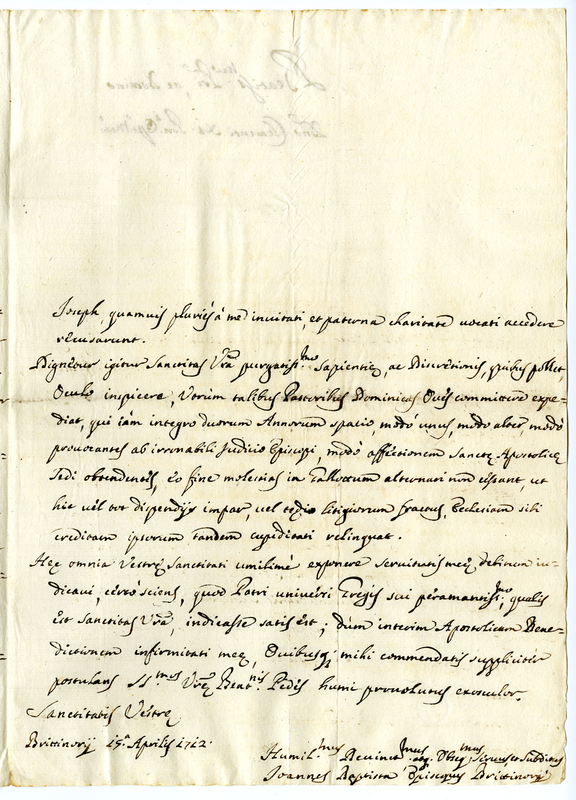 Joseph, quamvis pluries à me invitati, et paterna charitate vocati accedere
recusarunt.
Dignetur igitur Sanctitas Vrã purgatiss.mo Sapientię, ac Discretionis, quibus pollet,
Oculo inspicere, Utrum talibus Pastoribus Dominicas Oves committere expe-
diat, qui iàm integro duorum Annorum spatio, modò unus, modo alter, modò
provocantes ab irronabili Judicio Episcopi, modò affectionem Sanctę Apostolicę
Sedi obtendentes, eo fine molestias in alternari non cessant, ut
hic vèl tot dispendijs impar, vel tędio litigiorum fractus, Ecclesiam sibi
creditam ipsorum tandem cupiditati relinquat.
Hęc omnia Vestrę Sanctitati humilimè exponere servitutis meę debitum iu-
dicavi, certò sciens, quod Patri univérsi Gregis sui peramantiss.mo, qualis
est Sanctitas Vrã, indicasse satis est; dùm interim Apostolicam Bene-
dictionem infirmitati meę, Ovibusq; mihi commendatis suppliciter
postulans SS.mos Vrę Beat.nis Pedes humi provolutus exosculor.
Sanctitatis Vestrę
Brittinorij 15.a Aprilis 1712.
Humil.mus Devinct.mus atq. Obseq.mus Servus et Subditus
Joannes Baptista Episcopus Brittinorij